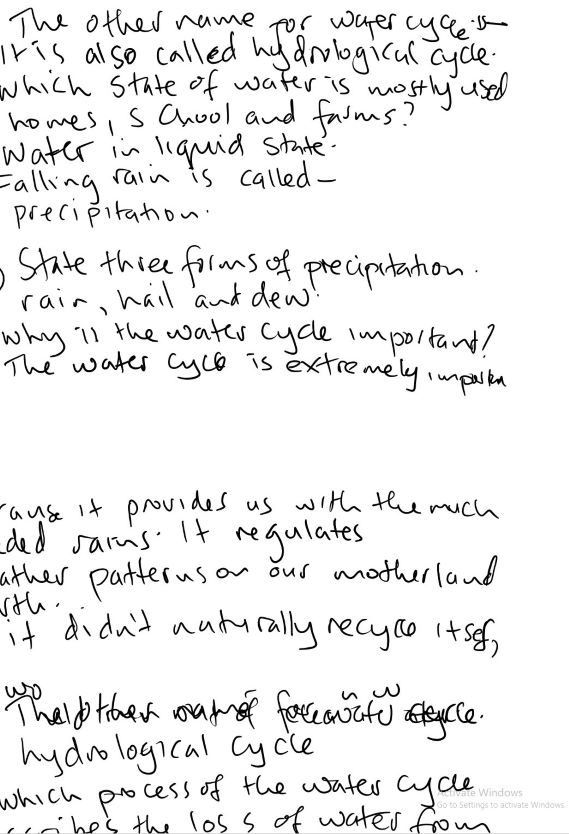 The other name for water cycle is
It is also called hydrological cycle.
which state of water is mostly used
homes, school and farms?
Water in liquid state.
Falling rain is called —
precipitation.
) State three forms of precipitation.
rain, hail and dew.
why is the water cycle important?
The water cycle is extremely importan
cause it provides us with the much
ded rains. It regulates
ather patterns on our motherland
rth.
it didn't naturally recycle itself,
wo
cycle.
hydrological cycle
which process of the water cycle
Activate Windows
Go to Settings to activate Windows.
scribes the loss of water from